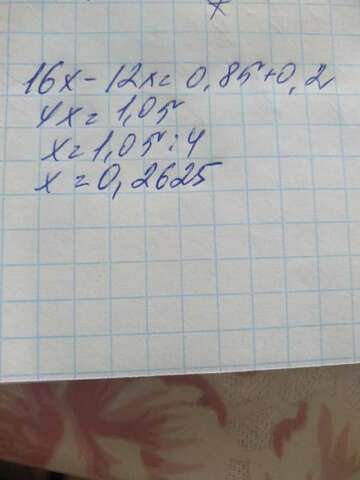 16x - 12x = 0,85+0,2
4x = 1,05
x = 1,05 : 4
x = 0,2625